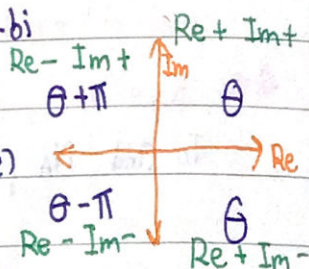 -bi
Re+ Im+
Re- Im+
Im
θ+π θ
e)
Re
θ-π θ
Re- Im- Re+ Im-